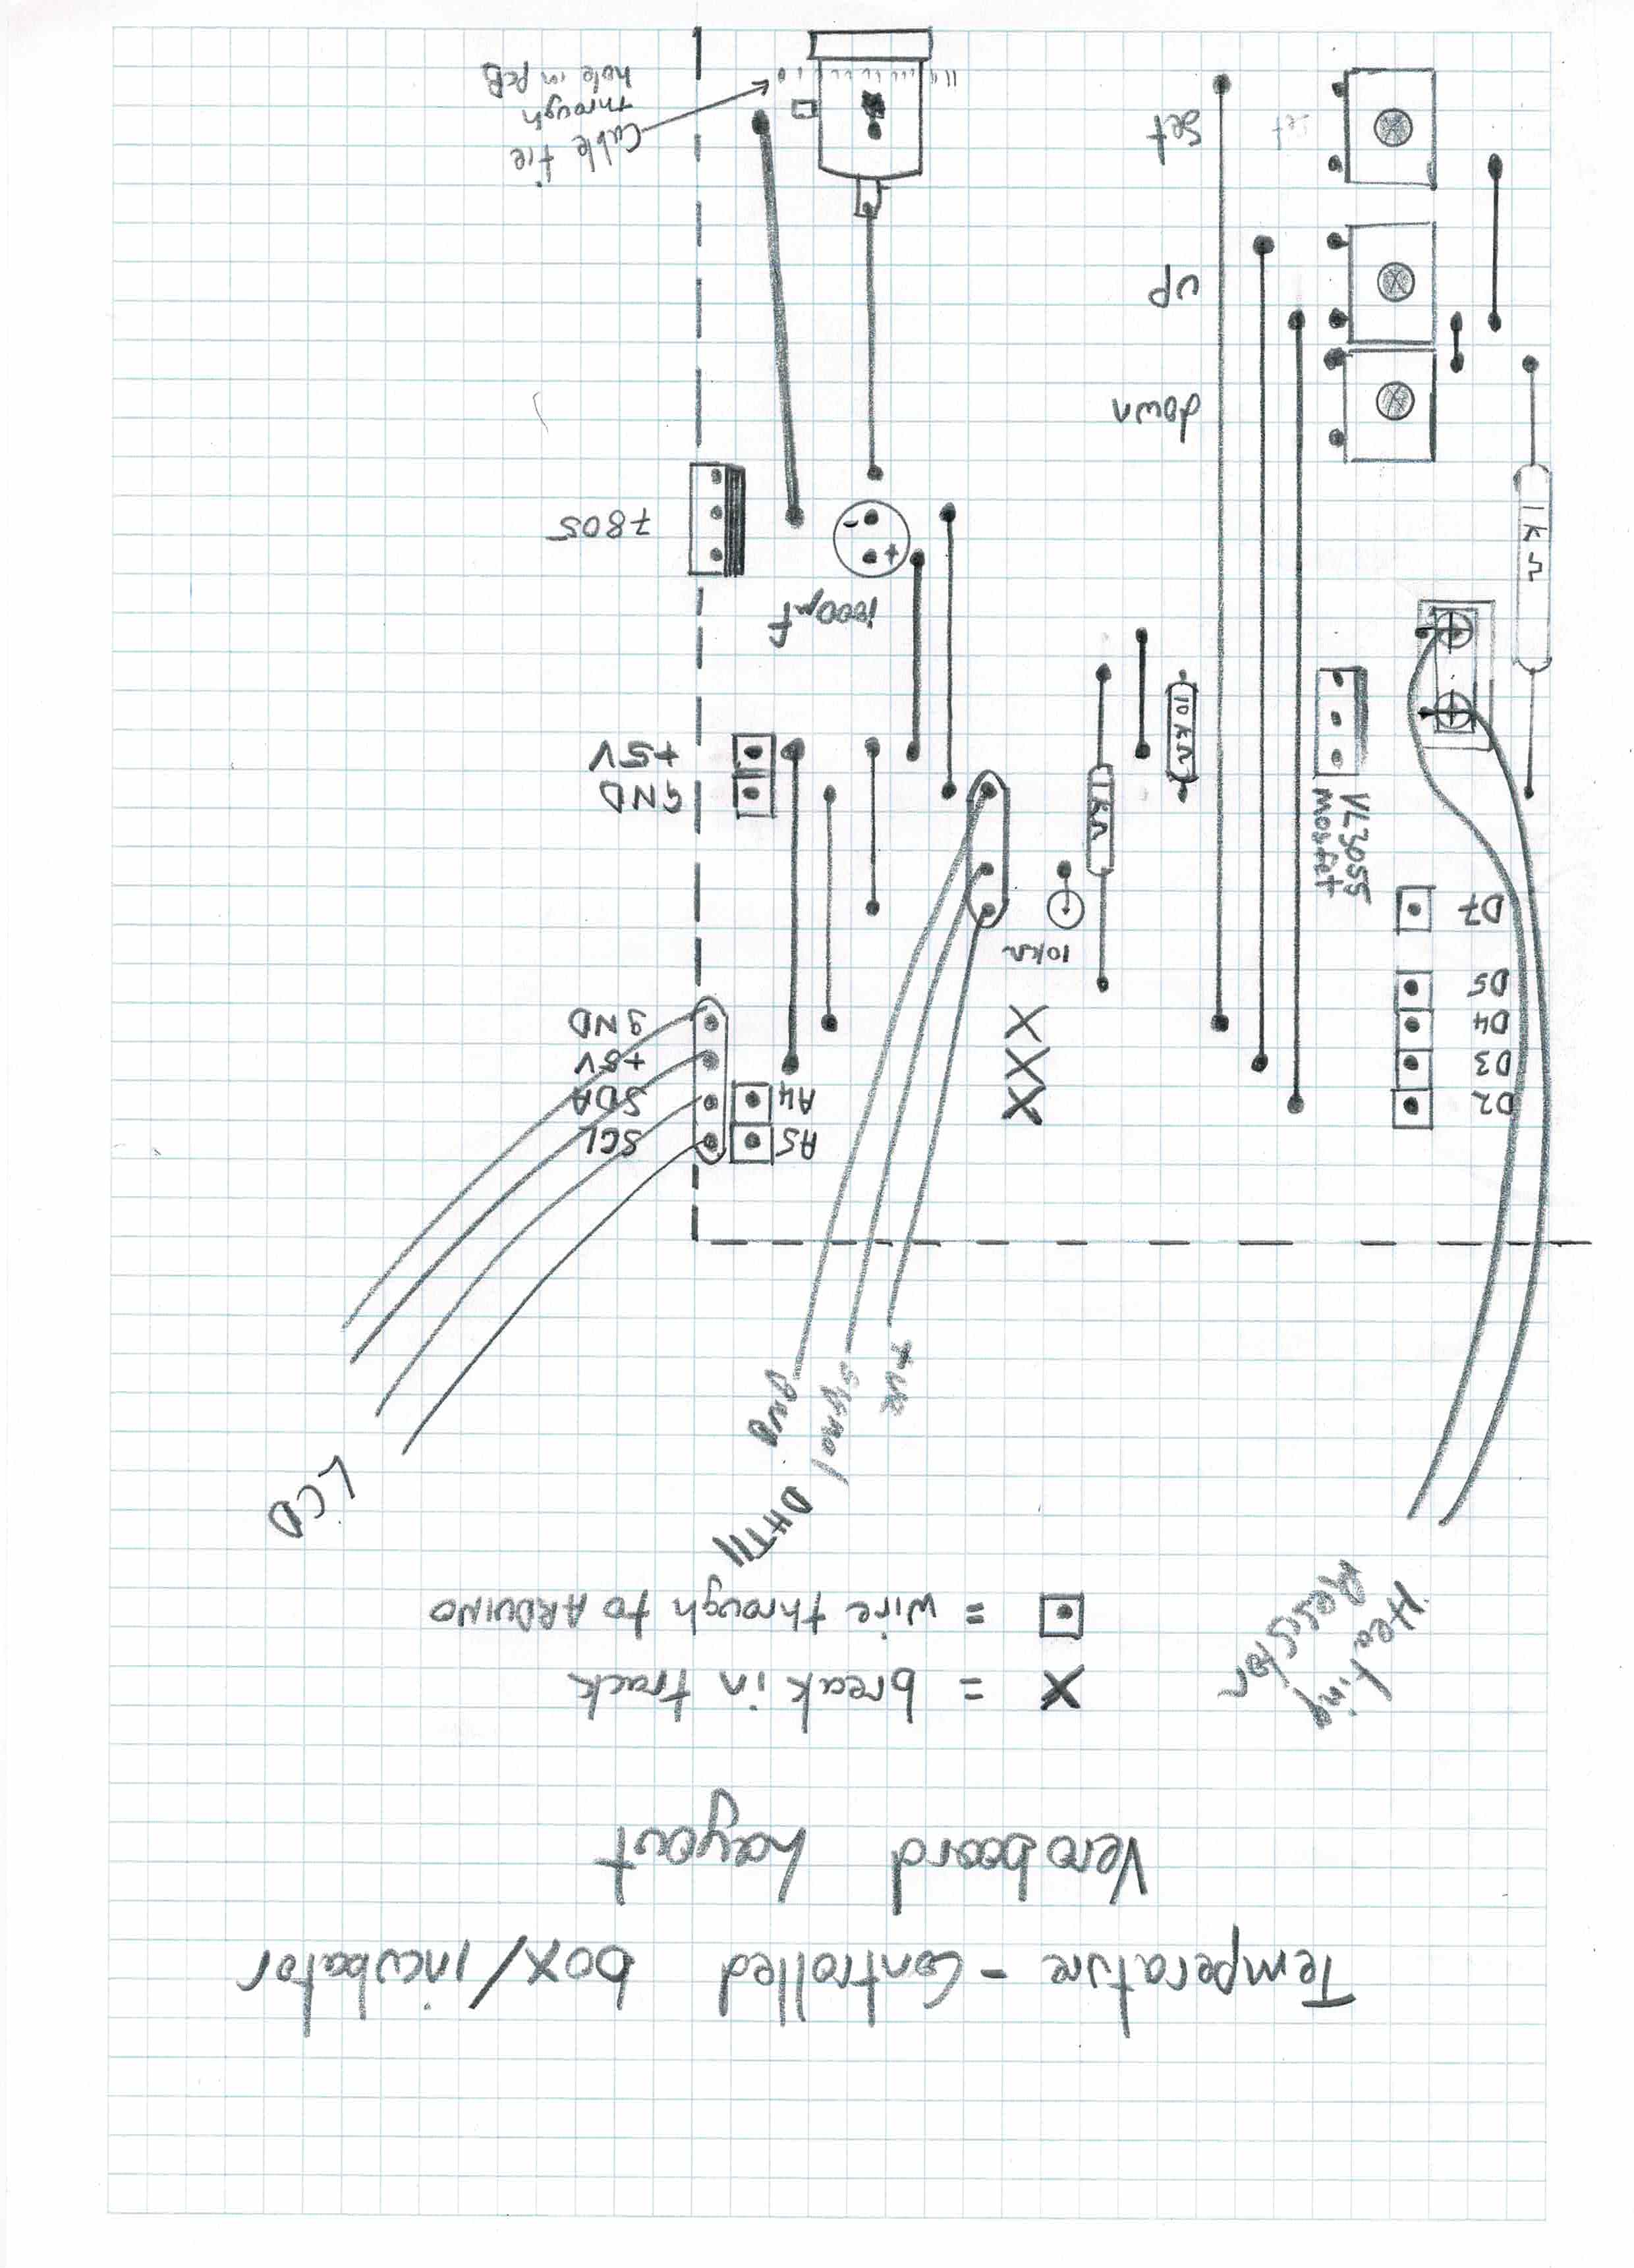 Temperature - Controlled box/incubator
Veroboard Layout
X = break in track
= wire through to ARDUINO
Heating
Resistor
DHT11
gnd
signal
+ve
LCD
A5
SCL
D2
A4
SDA
D3
+5V
D4
GND
D5
10kΩ
D7
VL3055
mosfet
1kΩ
GND
+5V
10kΩ
1000µf
+
-
1kΩ
7805
down
up
Set
Set
Cable tie
through
hole in PCB